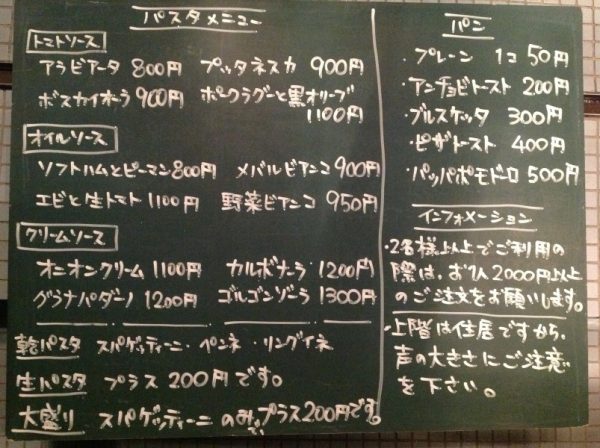 パスタメニュー
トマトソース
アラビアータ 800円 プッタネスカ 900円
ボスカイオーラ 900円 ポークラグーと黒オリーブ
1100円
オイルソース
ソフトハムとピーマン 800円 メバルビアンコ 900円
エビと生トマト 1100円 野菜ビアンコ 950円
クリームソース
オニオンクリーム 1100円 カルボナーラ 1200円
グラナパダーノ 1200円 ゴルゴンゾーラ 1300円
乾パスタ スパゲッティーニ・ペンネ・リングイネ
生パスタ プラス 200円です。
大盛り スパゲッティーニ のみプラス200円です。
パン
・プレーン 1コ 50円
・アンチョビトースト 200円
・ブルスケッタ 300円
・ピザトースト 400円
・パッパポモドーロ 500円
インフォメーション
・2名様以上でご利用の
際は、お1人2000円以上
のご注文をお願いします。
・上階は住居ですから、
声の大きさにご注意
を下さい。